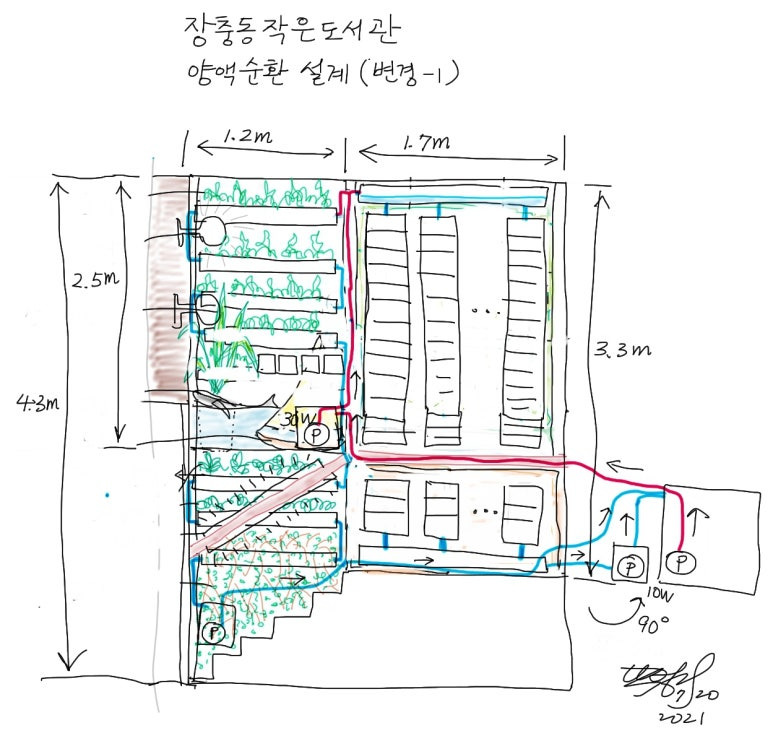 장충동작은도서관
양액순환 설계 (변경-1)
1.2m
1.7m
2.5m
4.3m
3.3m
30W
P
P
P
P
10W
90°
7/20
2021